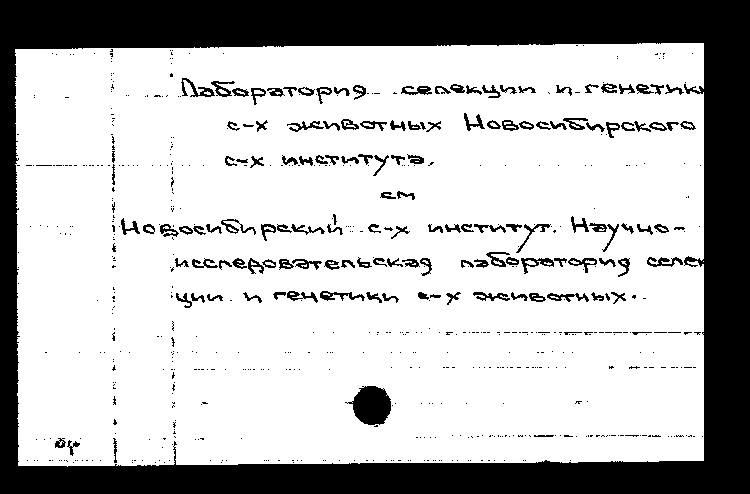 Лаборатория селекции и генетики
с-х животных Новосибирского
с-х института.
см
Новосибирский с-х институт. Научно-
исследовательская лаборатория селек
ции и генетики с-х животных.